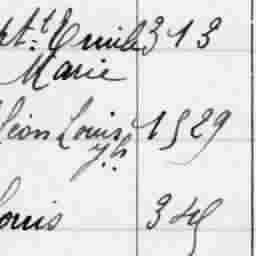 pt:t Emile 313
Marie
Léon Louis 1529
Jh
Louis 345